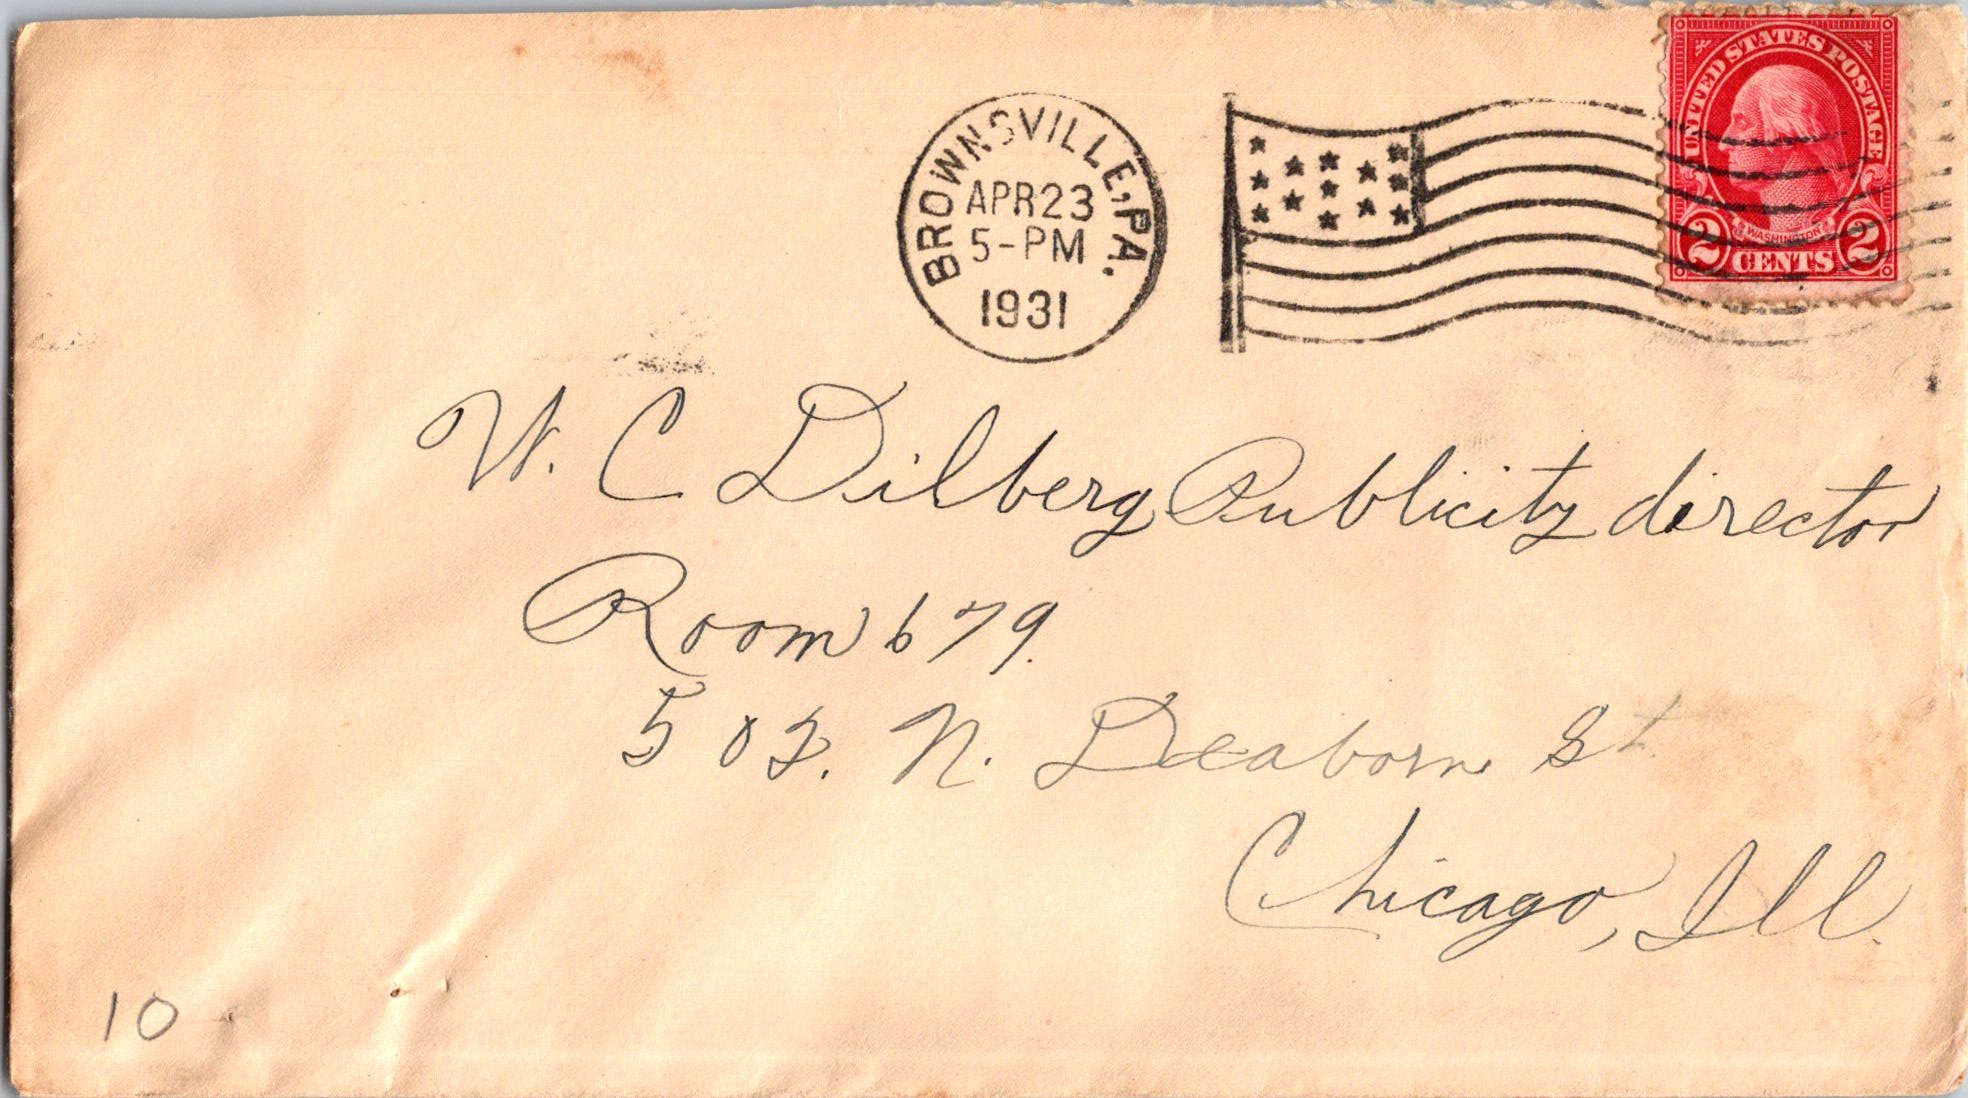 UNITED STATES POSTAGE
WASHINGTON
2 CENTS 2
BROWNSVILLE, PA.
APR 23
5-PM
1931
W. C Dilberg Publicity director
Room 679.
502. N. Deaborn St.
Chicago, Ill.
10